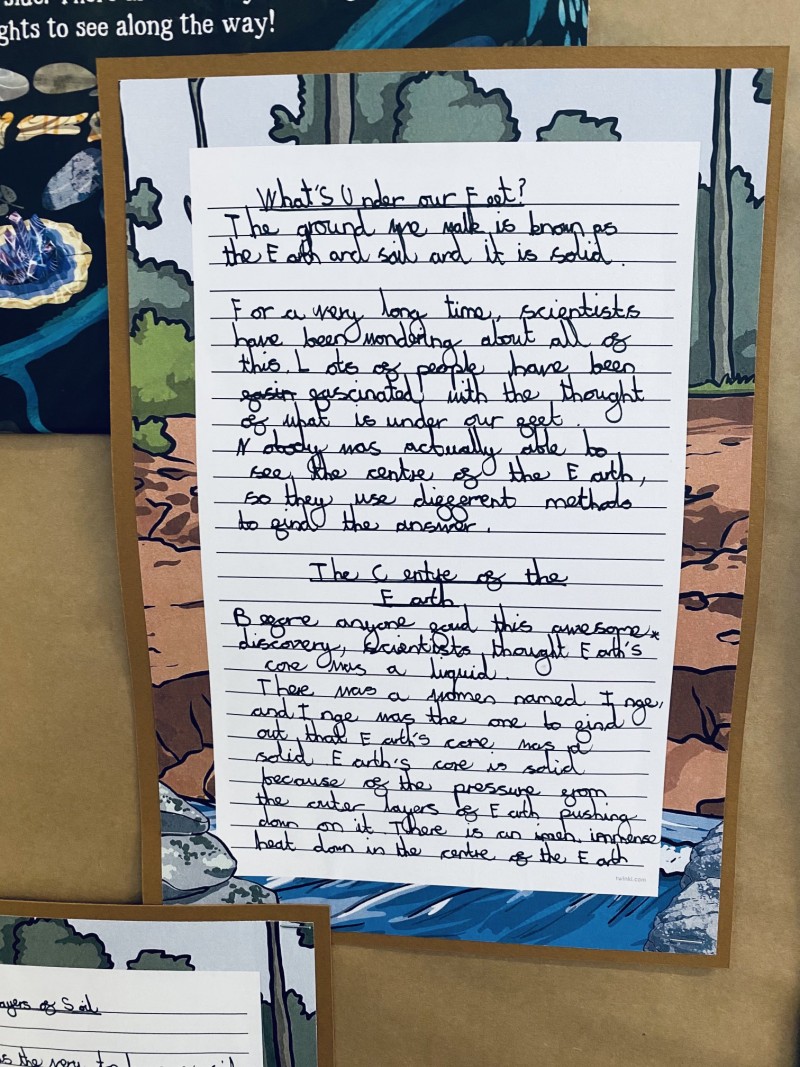 ghts to see along the way!
What's Under our Feet?
The ground we walk is known as
the Earth and soil and it is solid.
For a very long time, scientists
have been wondering about all of
this. Lots of people have been
fascinated with the thought
of what is under our feet.
Nobody was actually able to
see the centre of the Earth,
so they use different methods
to find the answer.
The Centre of the
Earth
Before anyone found this awesome*
discovery, scientists thought Earth's
core was a liquid.
There was a women named Inge,
and Inge was the one to find
out that Earth's core was a
solid Earth's core is solid
because of the pressure from
the outer layers of Earth pushing
down on it There is an immense
heat down in the centre of the Earth
twinkl.com
ayers of Soil
s the very